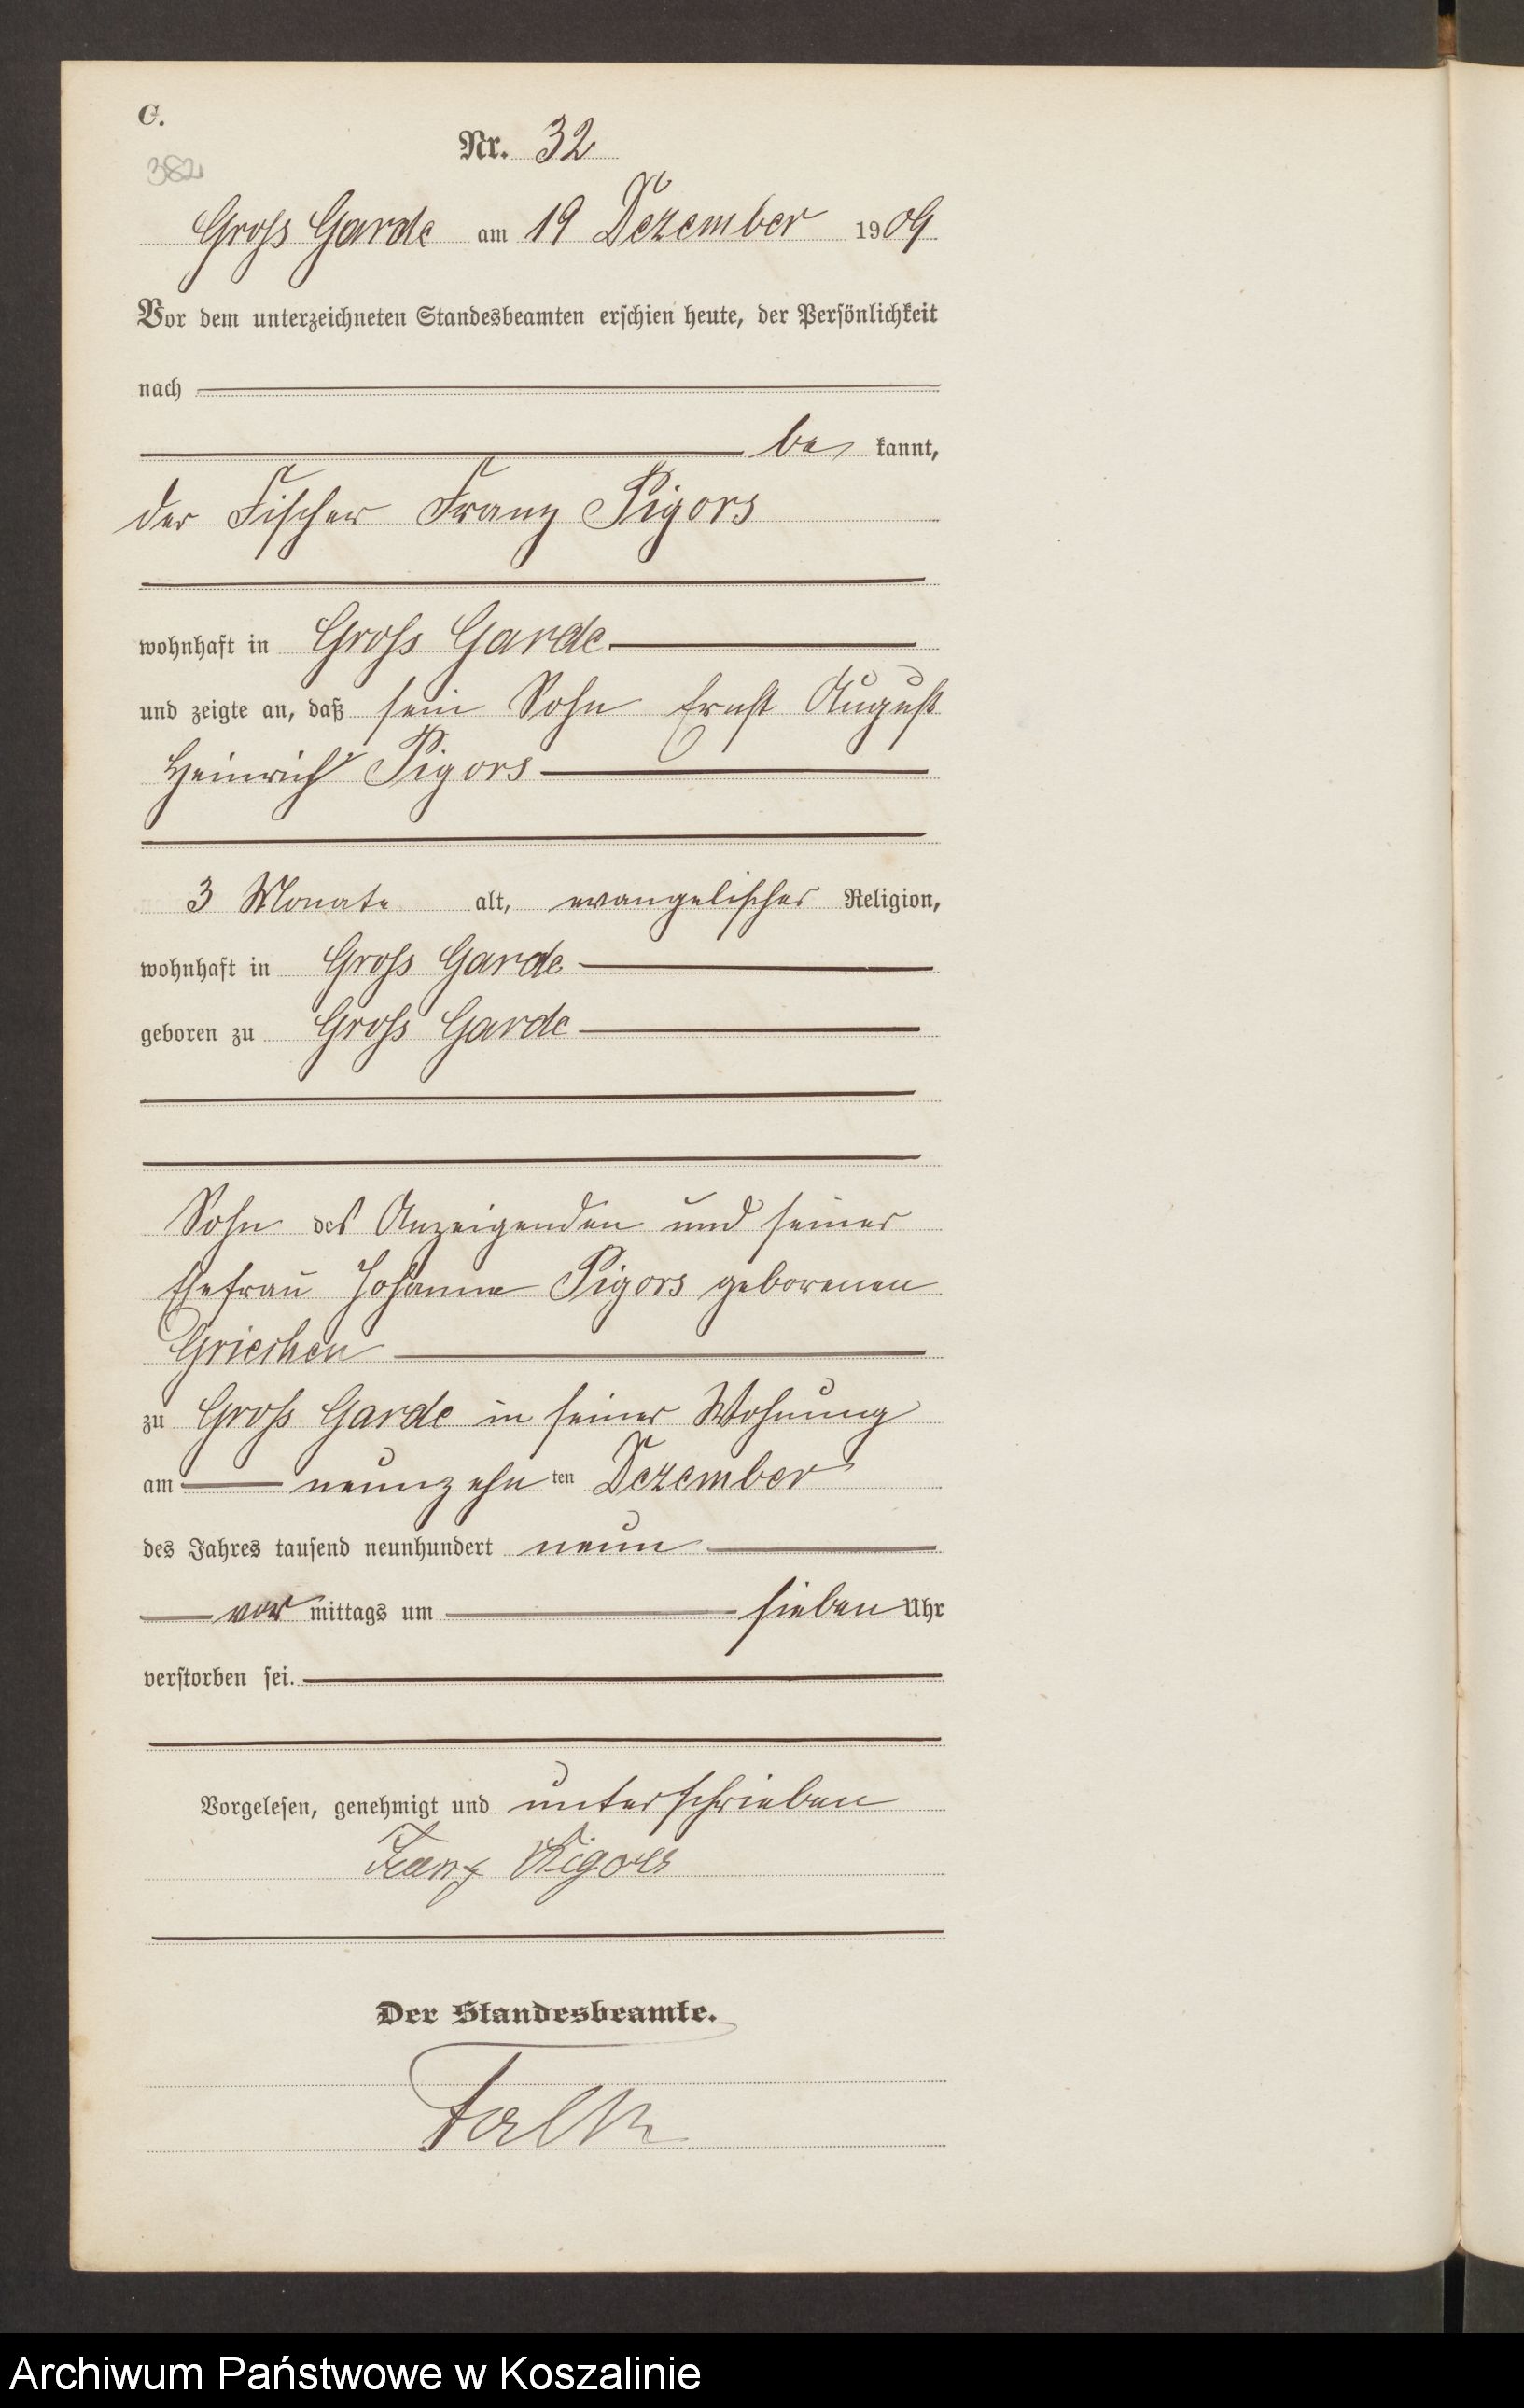 C.
382
Nr. 32
Gross Garde am 19 Dezember 1909
Vor dem unterzeichneten Standesbeamten erschien heute, der Persönlichkeit
nach
be kannt,
der Fischer Franz Pigors
wohnhaft in Gross Garde
und zeigte an, daß sein Sohn Ernst August
Heinrich Pigors
3 Monate alt, evangelischer Religion,
wohnhaft in Gross Garde
geboren zu Gross Garde
Sohn des Anzeigenden und seiner
Ehefrau Johanna Pigors geborenen
zu Gross Garde in seiner Wohnung
am neunzehn ten Dezember
des Jahres tausend neunhundert neun
vor mittags um sieben Uhr
verstorben sei.
Vorgelesen, genehmigt und unterschrieben
Franz Pigors
Der Standesbeamte.
Falk
Archiwum Państwowe w Koszalinie